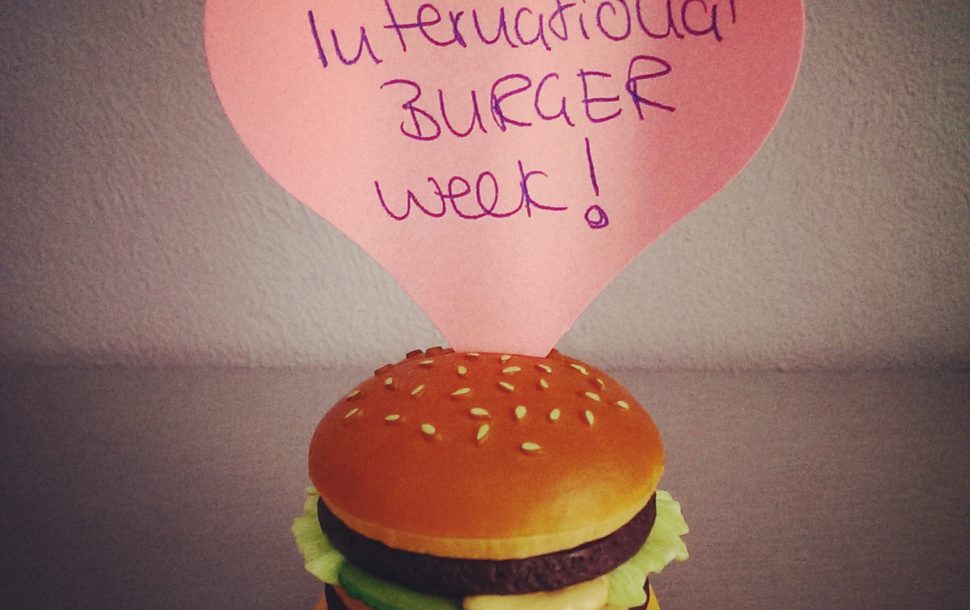 International
BURGER
week!